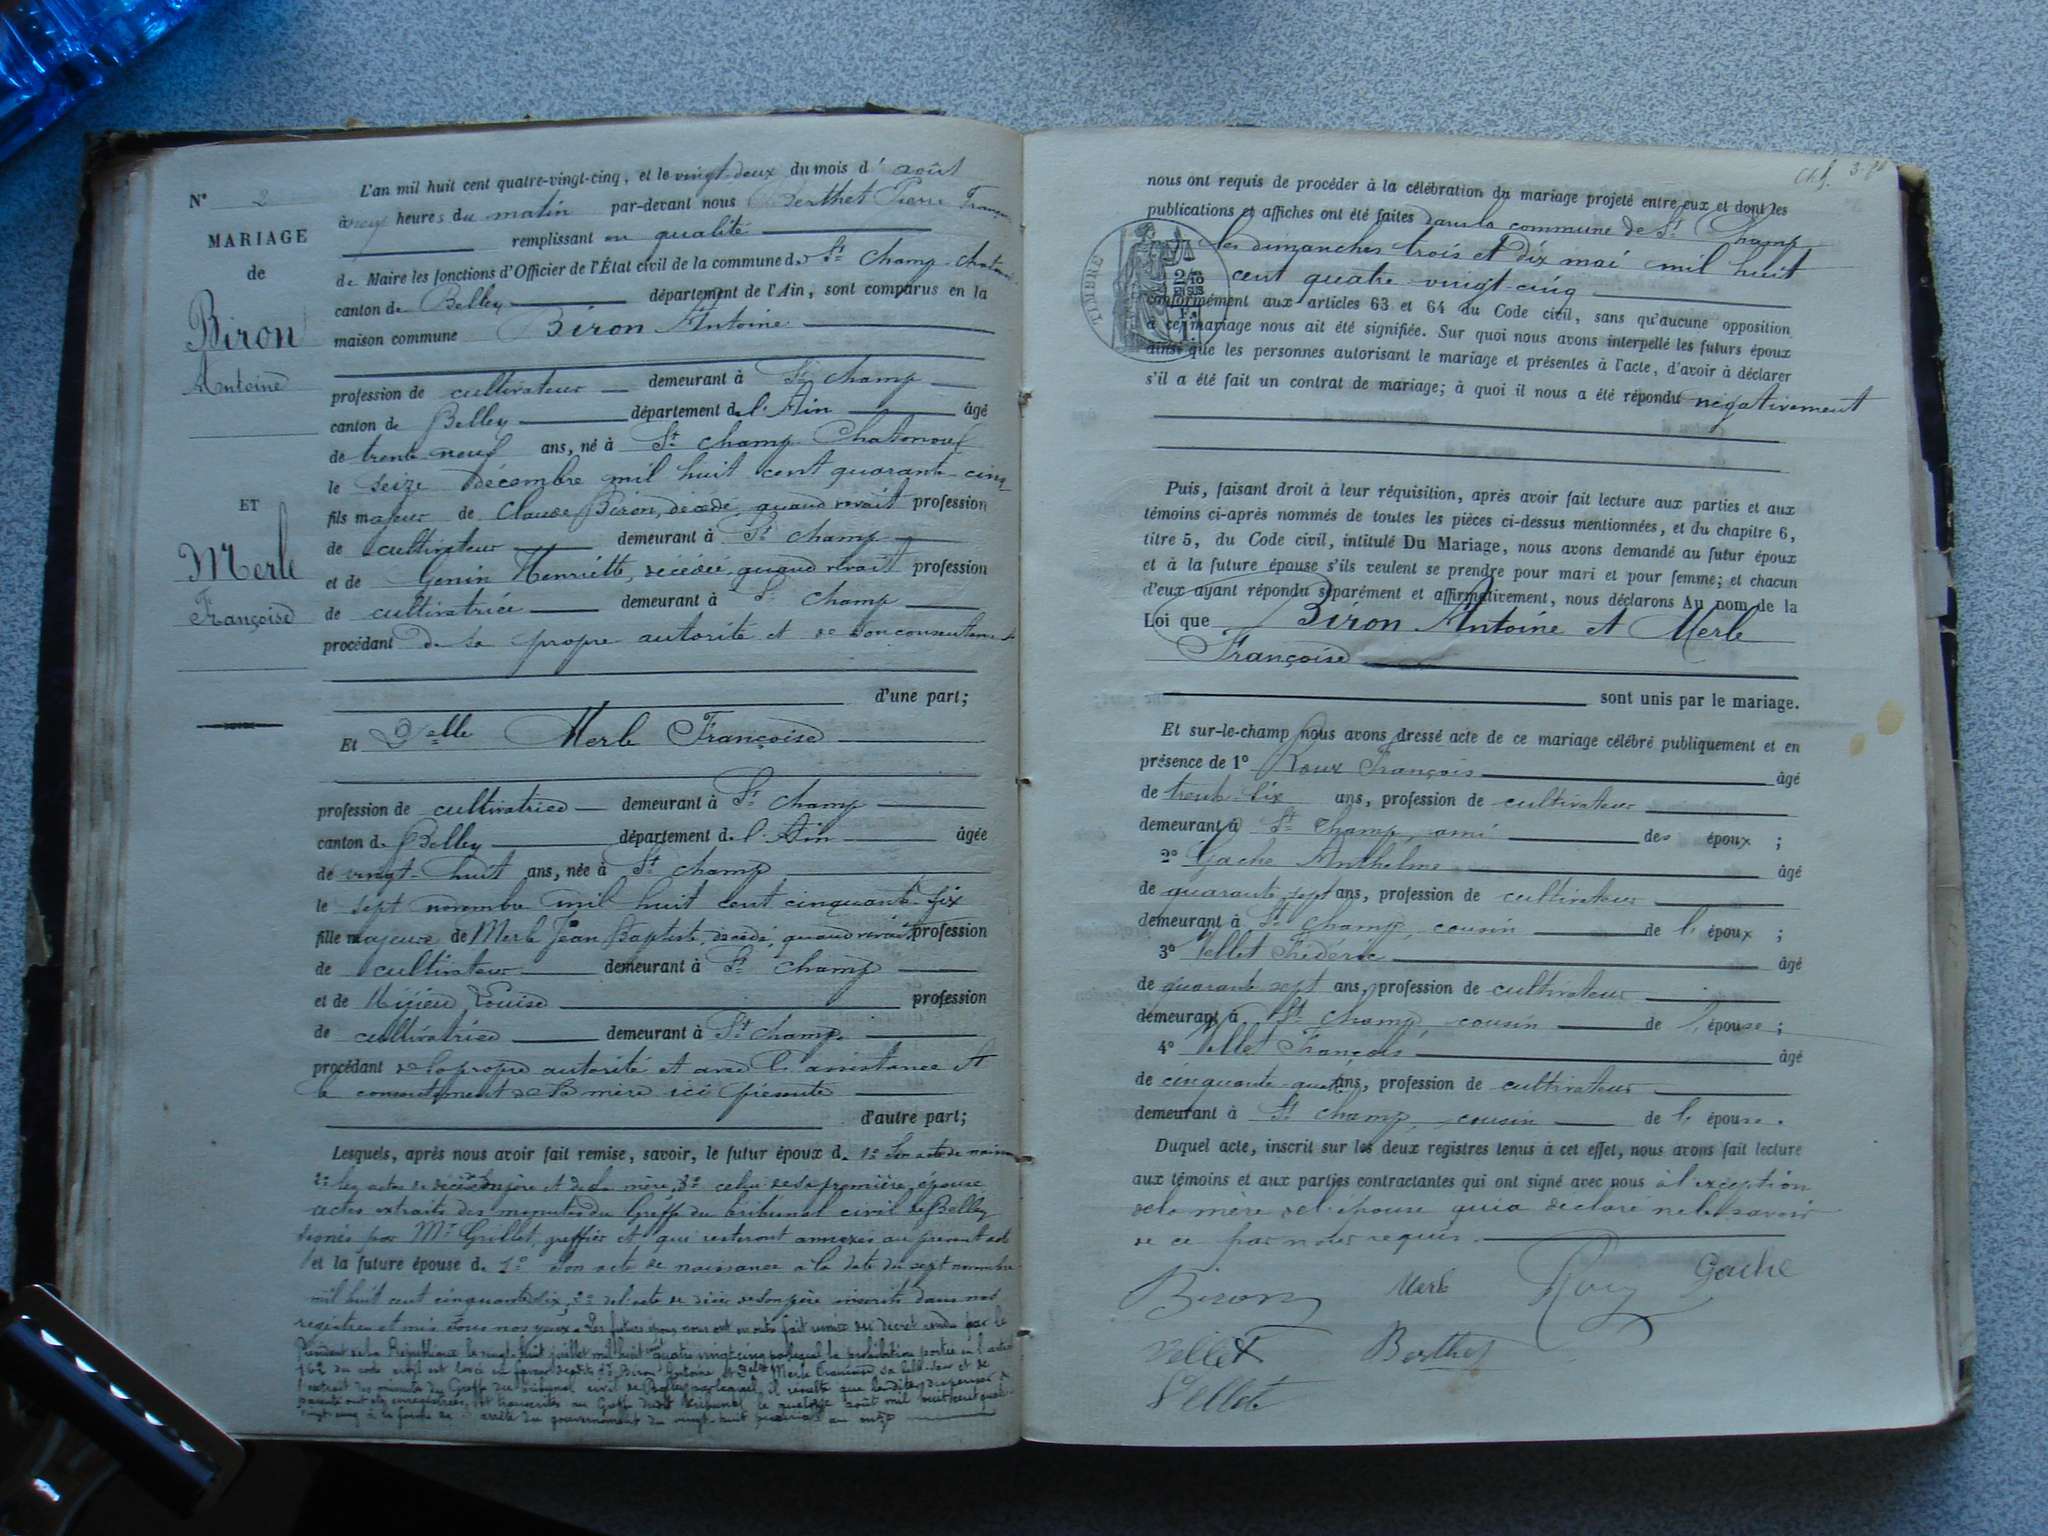 N° 2
MARIAGE
de
Biron
Antoine
ET
Merle
Françoise
L'an mil huit cent quatre-vingt-cinq, et le vingt-deux du mois d' août
à heures du matin par-devant nous Berthet Pierre
remplissant en qualité
de Maire les fonctions d'Officier de l'État civil de la commune de St Champ
canton de Belley département de l'Ain, sont comparus en la
maison commune Biron Antoine
profession de cultivateur demeurant à St champ
canton de Belley département de l'Ain âgé
de trente-neuf ans, né à St champ Chatonod
le seize Décembre mil huit cent quarante-cinq
fils majeur de Claude Biron, décédé, quand vivait profession
de cultivateur demeurant à St champ
et de Genin Henriette, décédée quand vivait profession
de cultivatrice demeurant à St champ
procédant de sa propre autorité et de son consentement
d'une part;
Et Delle Merle Françoise
profession de cultivatrice demeurant à St champ
canton de Belley département de l'Ain âgée
de vingt-huit ans, née à St champ
le sept novembre mil huit cent cinquante-six
fille majeure de Merle Jean Baptiste, décédé, quand vivait profession
de cultivateur demeurant à St champ
et de Louise profession
de cultivatrice demeurant à St champ
procédant de sa propre autorité et avec l'assistance et
le consentement de sa mère ici présente
d'autre part;
Lesquels, après nous avoir fait remise, savoir, le futur époux de 1° son acte de
2° les actes de décès de son père et de sa mère, 3° celui de sa première épouse
actes extraits des minutes du Greffe du tribunal civil de Belley
signés par Mr Grillet greffier et qui resteront annexés au présent acte
et la future épouse de 1° son acte de naissance à la date du sept novembre
mil huit cent cinquante-six, 2° de l'acte de décès de son père inscrits dans nos
registres et mis sous nos yeux. Les futurs époux nous ont en outre fait remise du décret rendu par le
Président de la République le vingt-huit juillet mil huit cent quatre vingt cinq par lequel la prohibition portée en l'article
162 du code civil est levée en faveur de Biron Antoine et Delle Merle Françoise sa belle-sœur et de
l'extrait des minutes du Greffe du tribunal civil de Belley par lequel il résulte que
ont été enregistrées et transcrites au Greffe dudit tribunal le quatorze août mil huit cent quatre
vingt cinq à la forme de arrêté du gouvernement du vingt-huit
nous ont requis de procéder à la célébration du mariage projeté entre eux et dont les
publications et affiches ont été faites dans la commune de St Champ
les dimanches trois et dix mai mil huit
cent quatre vingt-cinq
TIMBRE
2/10
EN SUS
conformément aux articles 63 et 64 du Code civil, sans qu'aucune opposition
à ce mariage nous ait été signifiée. Sur quoi nous avons interpellé les futurs époux
ainsi que les personnes autorisant le mariage et présentes à l'acte, d'avoir à déclarer
s'il a été fait un contrat de mariage; à quoi il nous a été répondu négativement
Puis, faisant droit à leur réquisition, après avoir fait lecture aux parties et aux
témoins ci-après nommés de toutes les pièces ci-dessus mentionnées, et du chapitre 6,
titre 5, du Code civil, intitulé Du Mariage, nous avons demandé au futur époux
et à la future épouse s'ils veulent se prendre pour mari et pour femme; et chacun
d'eux ayant répondu séparément et affirmativement, nous déclarons Au nom de la
Loi que Biron Antoine et Merle
Françoise
sont unis par le mariage.
Et sur-le-champ nous avons dressé acte de ce mariage célébré publiquement et en
présence de 1° Roux François âgé
de trente-six ans, profession de cultivateur
demeurant à St Champ, ami des époux ;
2° Gache Anthelme âgé
de quarante-sept ans, profession de cultivateur
demeurant à St Champ, cousin de l' époux ;
3° Vellet Frédéric âgé
de quarante sept ans, profession de cultivateur
demeurant à St Champ, cousin de l' épouse ;
4° Vellet François âgé
de cinquante-quatre ans, profession de cultivateur
demeurant à St Champ, cousin de l' épouse.
Duquel acte, inscrit sur les deux registres tenus à cet effet, nous avons fait lecture
aux témoins et aux parties contractantes qui ont signé avec nous à l'exception
de la mère de l'épouse qui a déclaré ne le savoir
de ce par nous requis.
Biron Merle Roux Gache
Vellet Berthet
Vellet